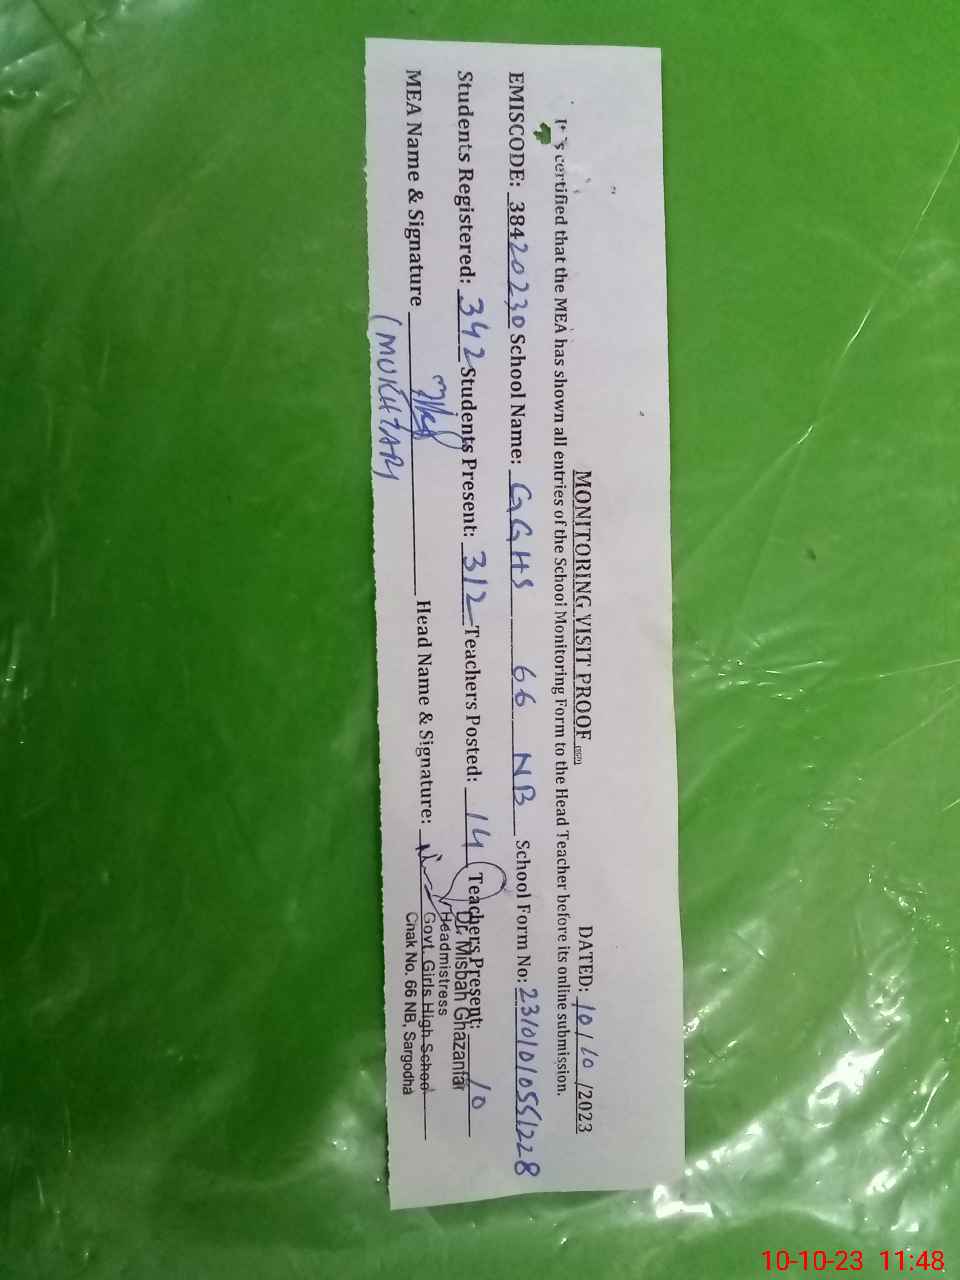 MONITORING VISIT PROOF
DATED: 10/10/2023
It is certified that the MEA has shown all entries of the School Monitoring Form to the Head Teacher before its online submission.
EMISCODE: 38420230 School Name: GGHS 66 NB School Form No: 2310101055 1228
Students Registered: 342 Students Present: 312 Teachers Posted: 14 Teachers Present: 10
MEA Name & Signature Head Name & Signature:
(MUKHTAR)
Dr. Misbah Ghazanfar
Headmistress
Govt. Girls High School
Chak No. 66 NB, Sargodha
10-10-23 11:48